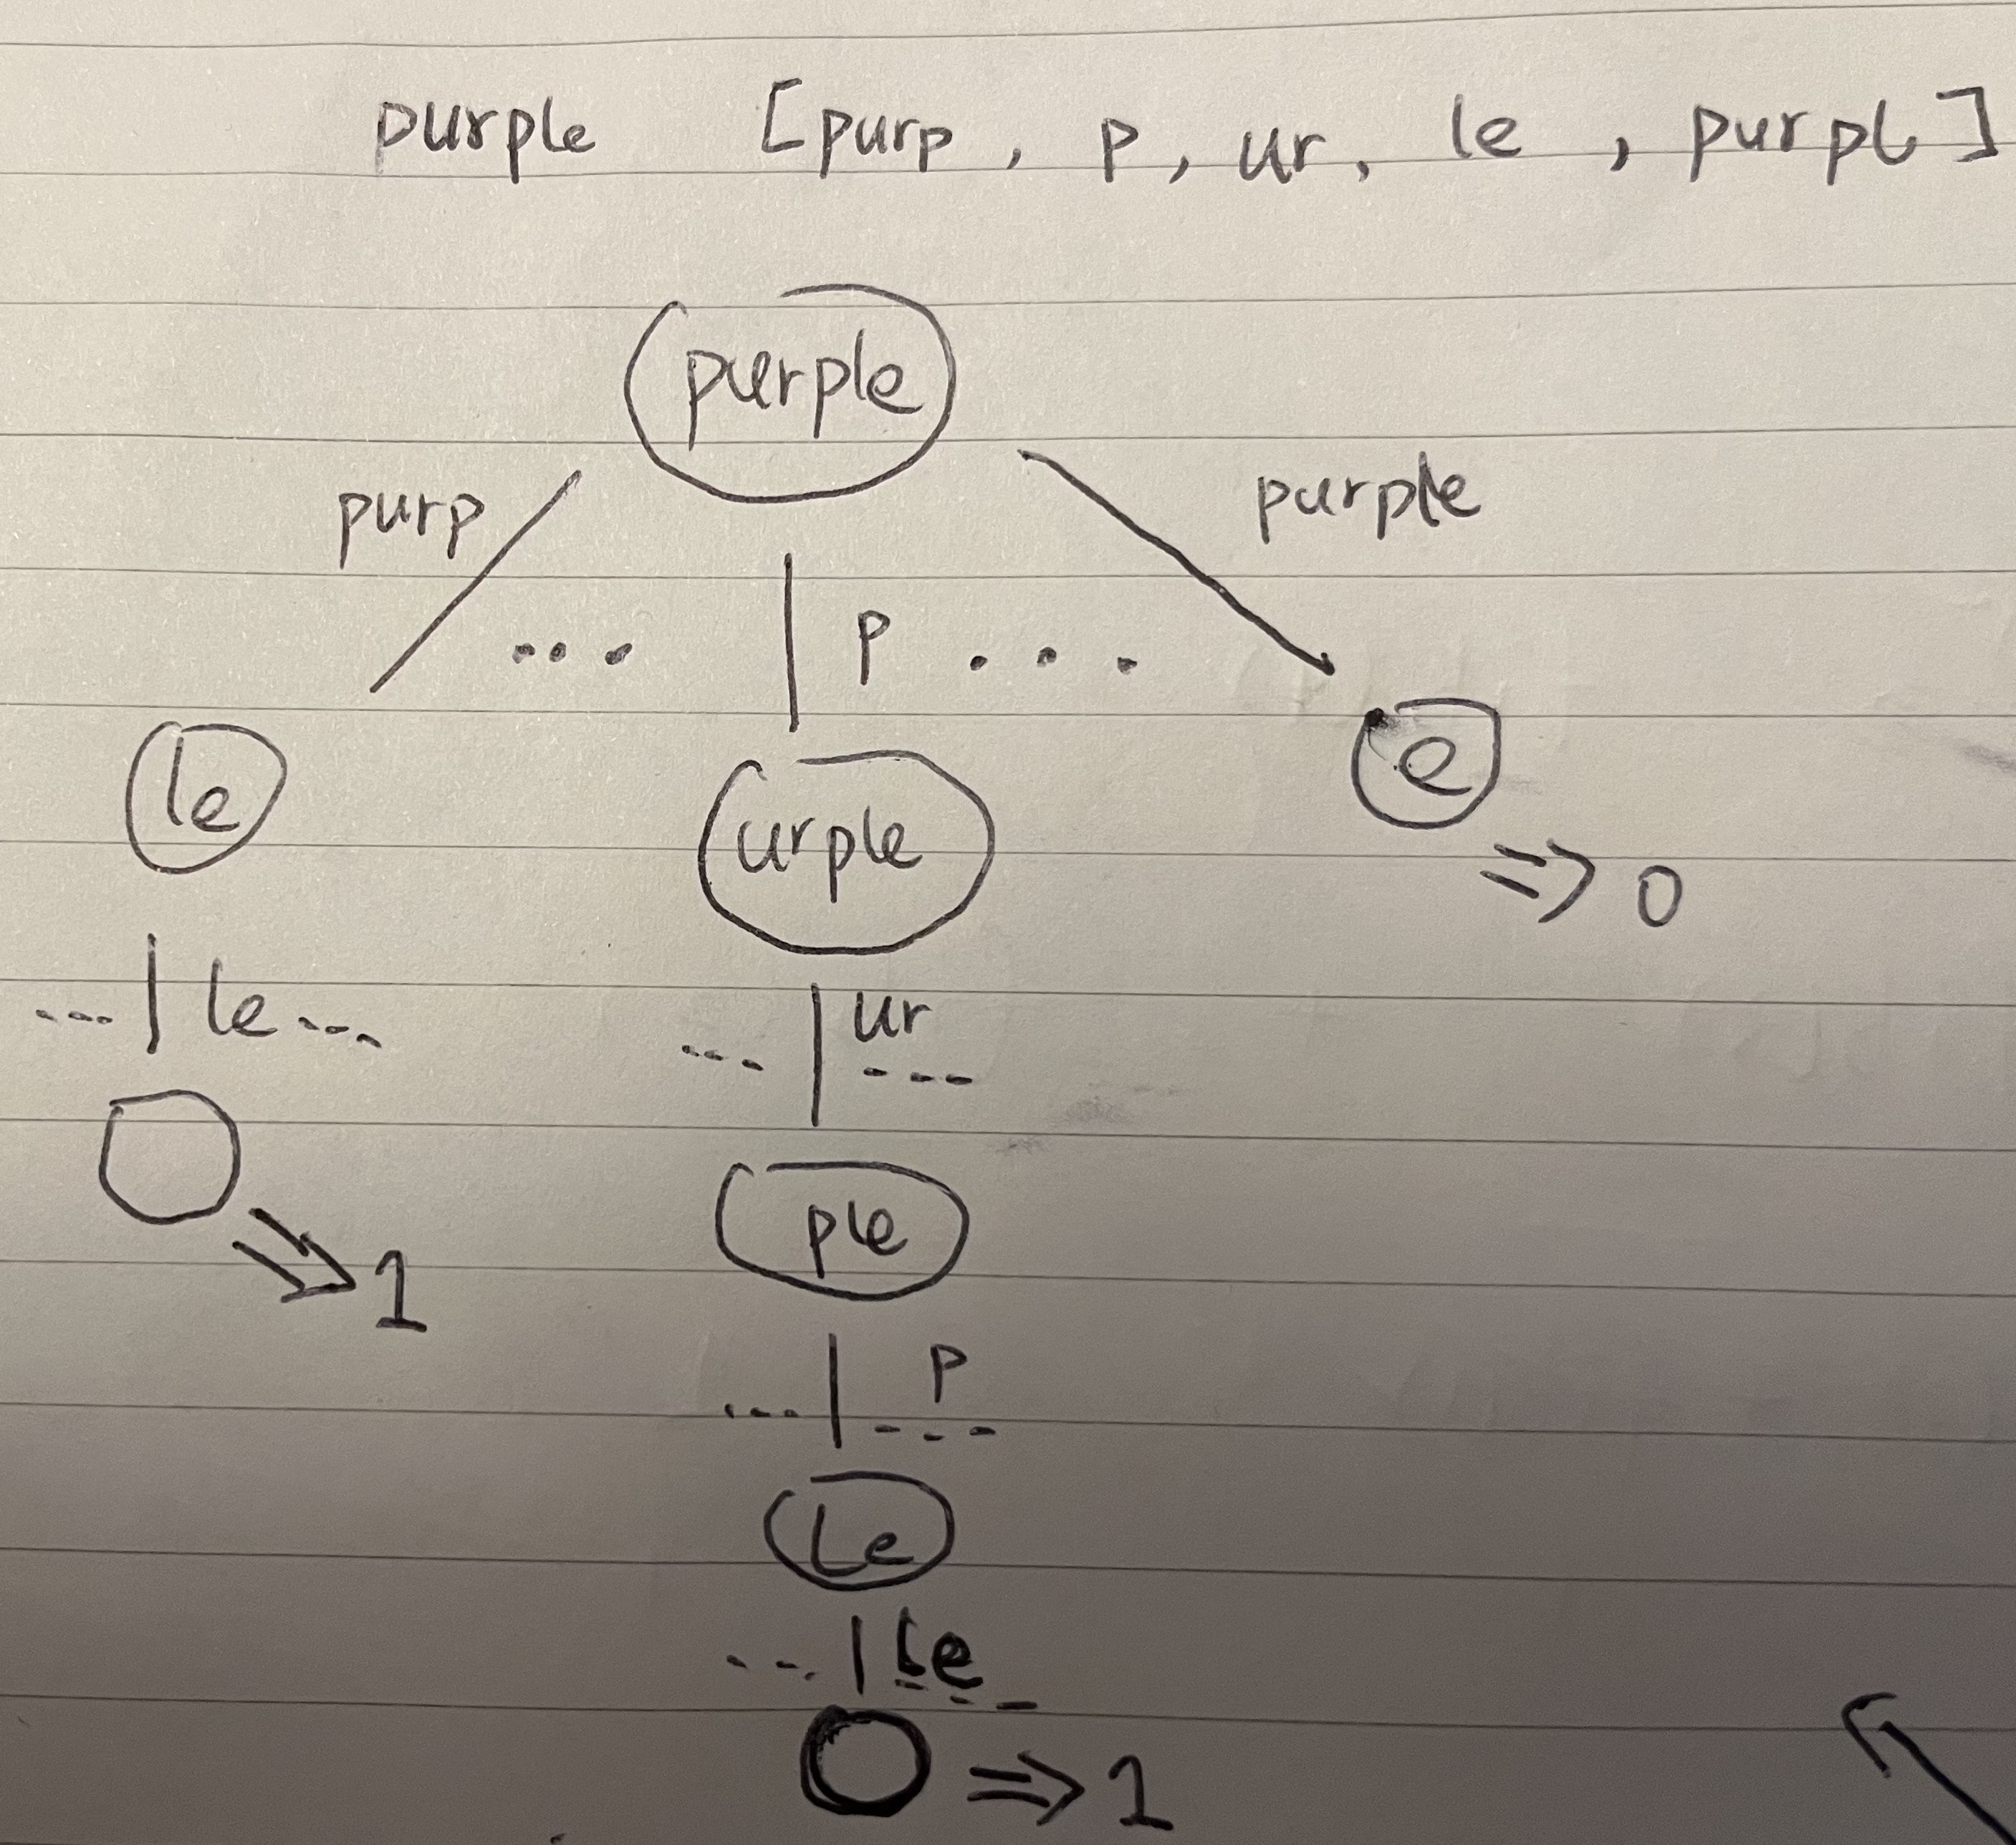 purple [purp, p, ur, le, purpl]
purple
purp
purple
... p ...
le
urple
e
=> 0
... le ...
ur
... ...
ple
=> 1
p
... ...
le
... le ...
=> 1